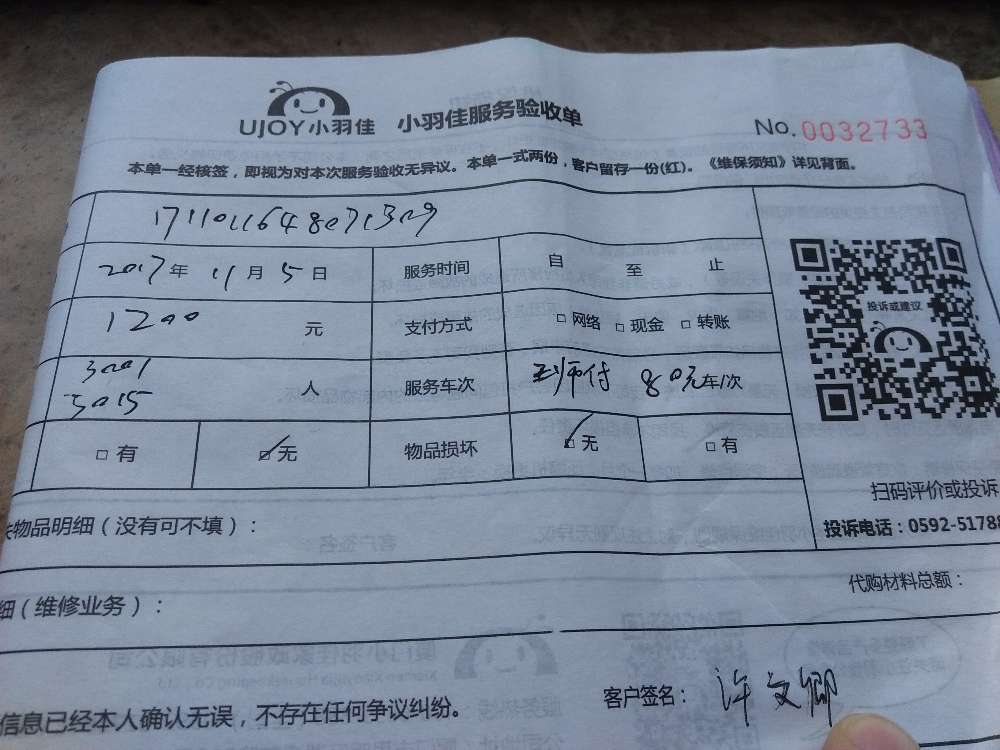 UJOY小羽佳 小羽佳服务验收单
No.0032733
本单一经核签，即视为对本次服务验收无异议。本单一式两份，客户留存一份(红)。《维保须知》详见背面。
2017年 11月 5日 服务时间 自 至 止
1200 元 支付方式 □网络 □现金 □转账
投诉或建议
3001
5015
人 服务车次 80元车/次
□有 ☑无 物品损坏 ☑无 □有
扫码评价或投诉
物品明细（没有可不填）：
投诉电话：0592-51788
代购材料总额：
细（维修业务）：
客户签名：许文卿
信息已经本人确认无误，不存在任何争议纠纷。